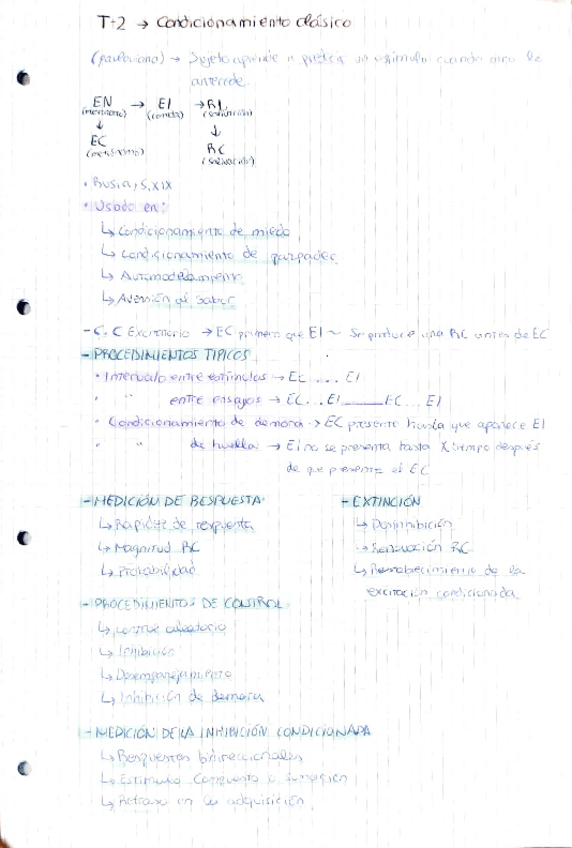 T-2 → Condicionamiento clásico
(pavloviano) → Sujeto aprende a predecir un estímulo cuando otro le
antecede.
EN → EI → RI
(metrónomo) (comida) (salivación)
↓ ↓
EC RC
(metrónomo) (salivación)
• Rusia, S. XIX
• Usado en:
↳ Condicionamiento de miedo
↳ Condicionamiento de parpadeo
↳ Automodelamiento
↳ Aversión al sabor
- C.C Excitatorio → EC primero que EI ~ Se produce una RC antes de EC
- PROCEDIMIENTOS TIPICOS
• Intervalo entre estímulos → EC ... EI
• " entre ensayos → EC...EI ____ EC...EI
• Condicionamiento de demora → EC presente hasta que aparece EI
• " de huella → EI no se presenta hasta X tiempo después
de que presente el EC
- MEDICIÓN DE RESPUESTA
↳ Rapidez de respuesta
↳ Magnitud RC
↳ Probabilidad
- EXTINCIÓN
↳ Desinhibición
→ Renovación RC
↳ Restablecimiento de la
excitación condicionada
- PROCEDIMIENTOS DE CONTROL
↳ control aleatorio
↳ Inhibición
↳ Desemparejamiento
↳ Inhibición de demora
- MEDICIÓN DE LA INHIBICIÓN CONDICIONADA
↳ Respuestas bidireccionales
↳ Estímulo Compuesto o sumación
↳ Retraso en la adquisición